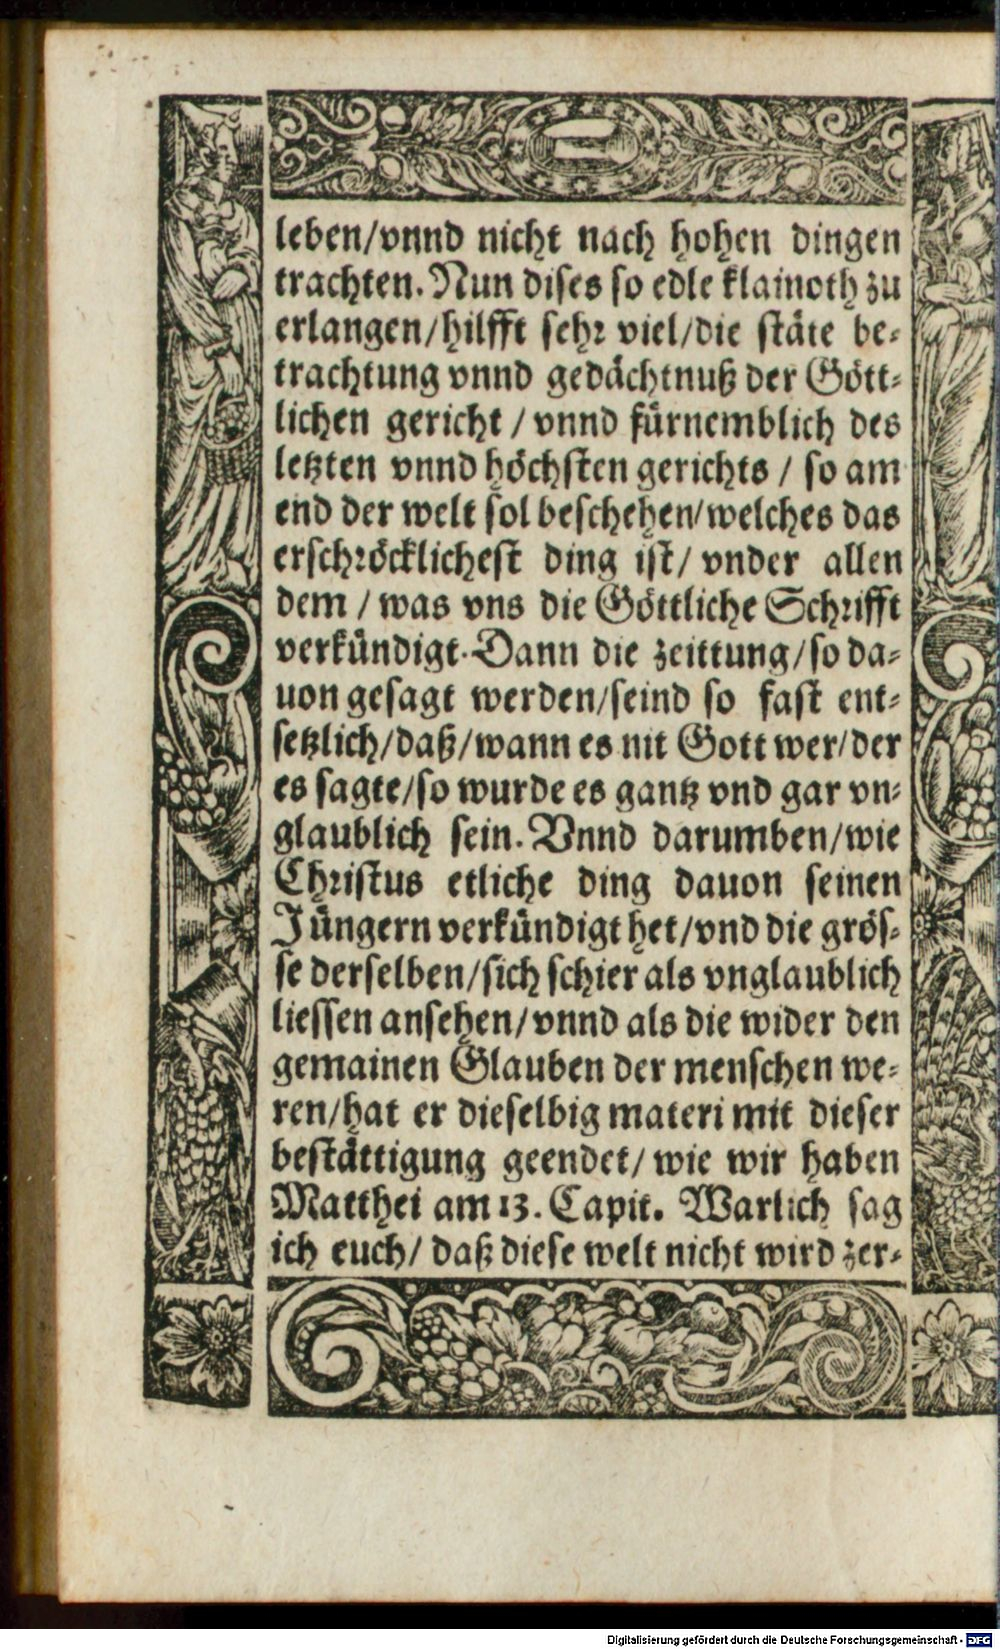 leben/vnnd nicht nach hohen dingen
trachten. Nun dises so edle klainoth zu
erlangen/hilfft sehr viel/die stäte be-
trachtung vnnd gedächtnuß der Gött-
lichen gericht / vnnd fürnemblich des
letzten vnnd höchsten gerichts / so am
end der welt sol beschehen/welches das
erschröcklichest ding ist/ vnder allen
dem / was vns die Göttliche Schrifft
verkündigt. Dann die zeittung/so da-
uon gesagt werden/seind so fast ent-
setzlich/daß/wann es nit Gott wer/der
es sagte/so wurde es gantz vnd gar vn-
glaublich sein. Vnnd darumben/wie
Christus etliche ding dauon seinen
Jüngern verkündigt het/vnd die grös-
se derselben/sich schier als vnglaublich
liessen ansehen/vnnd als die wider den
gemainen Glauben der menschen we-
ren/hat er dieselbig materi mit dieser
bestättigung geendet/ wie wir haben
Matthei am 13. Capit. Warlich sag
ich euch/ daß diese welt nicht wird zer-
Digitalisierung gefördert durch die Deutsche Forschungsgemeinschaft - DFG